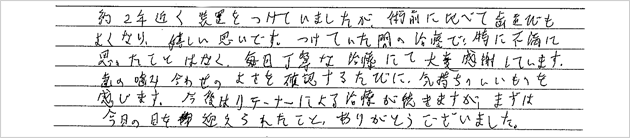 約2年近く装置をつけていましたが、術前に比べて歯並びも
よくなり、嬉しい思いです。つけていた間の治療で特に不満に
思ったことはなく、毎回丁寧な治療にて大変感謝しています。
歯の噛み合わせのよさを確認するたびに、気持ちのいいものを
感じます。今後はリテーナーによる治療が続きますが、まずは
今日の日を迎えられたこと、ありがとうございました。